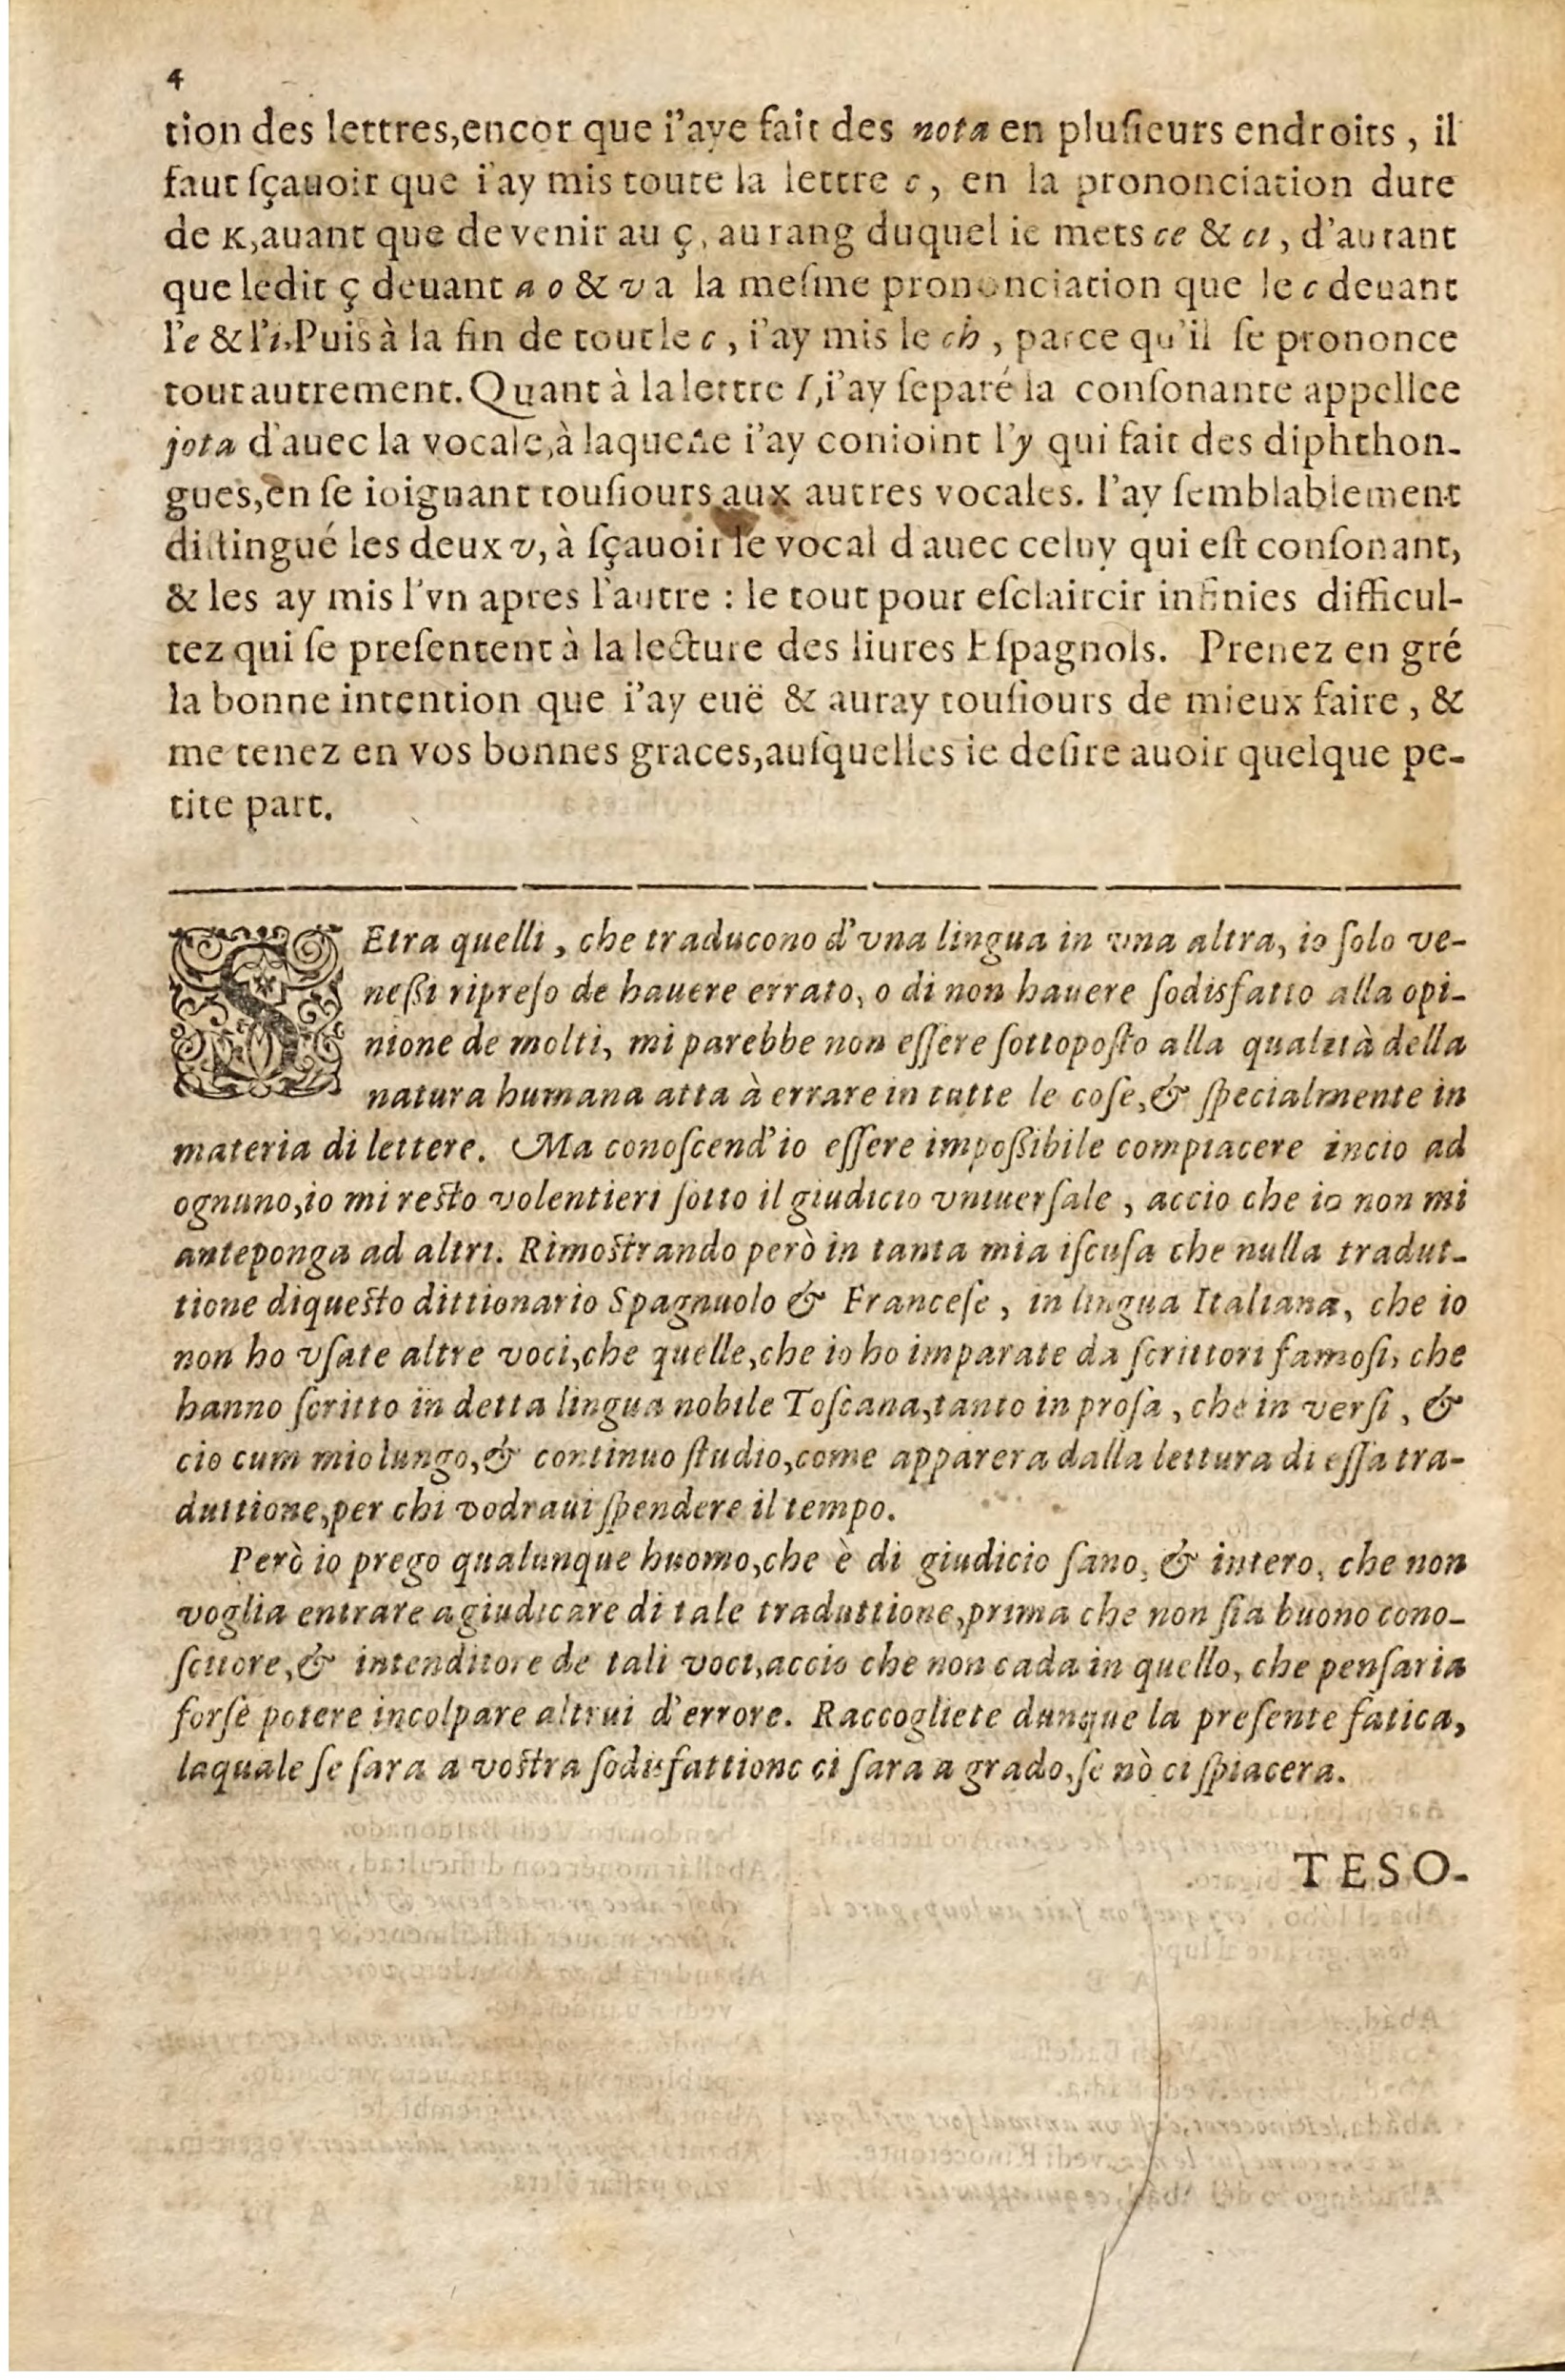 4
tion des lettres,encor que i'aye fait des nota en plusieurs endroits, il
faut sçauoir que i'ay mis toute la lettre c, en la prononciation dure
de K,auant que de venir au ç, au rang duquel ie mets ce & ci, d'autant
que ledit ç deuant a o & v a la mesme prononciation que le c deuant
l'e & l'i.Puis à la fin de tout le c, i'ay mis le ch, parce qu'il se prononce
tout autrement. Quant à la lettre I,i'ay separé la consonante appellee
jota d'auec la vocale,à laquelle i'ay conioint l'y qui fait des diphthon-
gues,en se ioignant tousiours aux autres vocales. I'ay semblablement
distingué les deux v, à sçauoir le vocal d'auec celuy qui est consonant,
& les ay mis l'vn apres l'autre : le tout pour esclaircir infinies difficul-
tez qui se presentent à la lecture des liures Espagnols. Prenez en gré
la bonne intention que i'ay euë & auray tousiours de mieux faire, &
me tenez en vos bonnes graces,ausquelles ie desire auoir quelque pe-
tite part.
SE tra quelli, che traducono d'vna lingua in vna altra, io solo ve-
nessi ripreso de hauere errato, o di non hauere sodisfatto alla opi-
nione de molti, mi parebbe non essere sottoposto alla qualità della
natura humana atta à errare in tutte le cose,& specialmente in
materia di lettere. Ma conoscend'io essere impossibile compiacere incio ad
ognuno,io mi resto volentieri sotto il giudicio vniuersale, accio che io non mi
anteponga ad altri. Rimostrando però in tanta mia iscusa che nulla tradut-
tione diquesto dittionario Spagnuolo & Francese, in lingua Italiana, che io
non ho vsate altre voci,che quelle,che io ho imparate da scrittori famosi, che
hanno scritto in detta lingua nobile Toscana,tanto in prosa, che in versi, &
cio cum mio lungo,& continuo studio,come apparera dalla lettura di essa tra-
duttione,per chi vodraui spendere il tempo.
Però io prego qualunque huomo,che è di giudicio sano, & intero, che non
voglia entrare a giudicare di tale traduttione,prima che non sia buono cono-
scitore,& intenditore de tali voci,accio che non cada in quello, che pensaria
forse potere incolpare altrui d'errore. Raccogliete dunque la presente fatica,
laquale se sara a vostra sodisfattione ci sara a grado,se nò ci spiacera.
TESO-